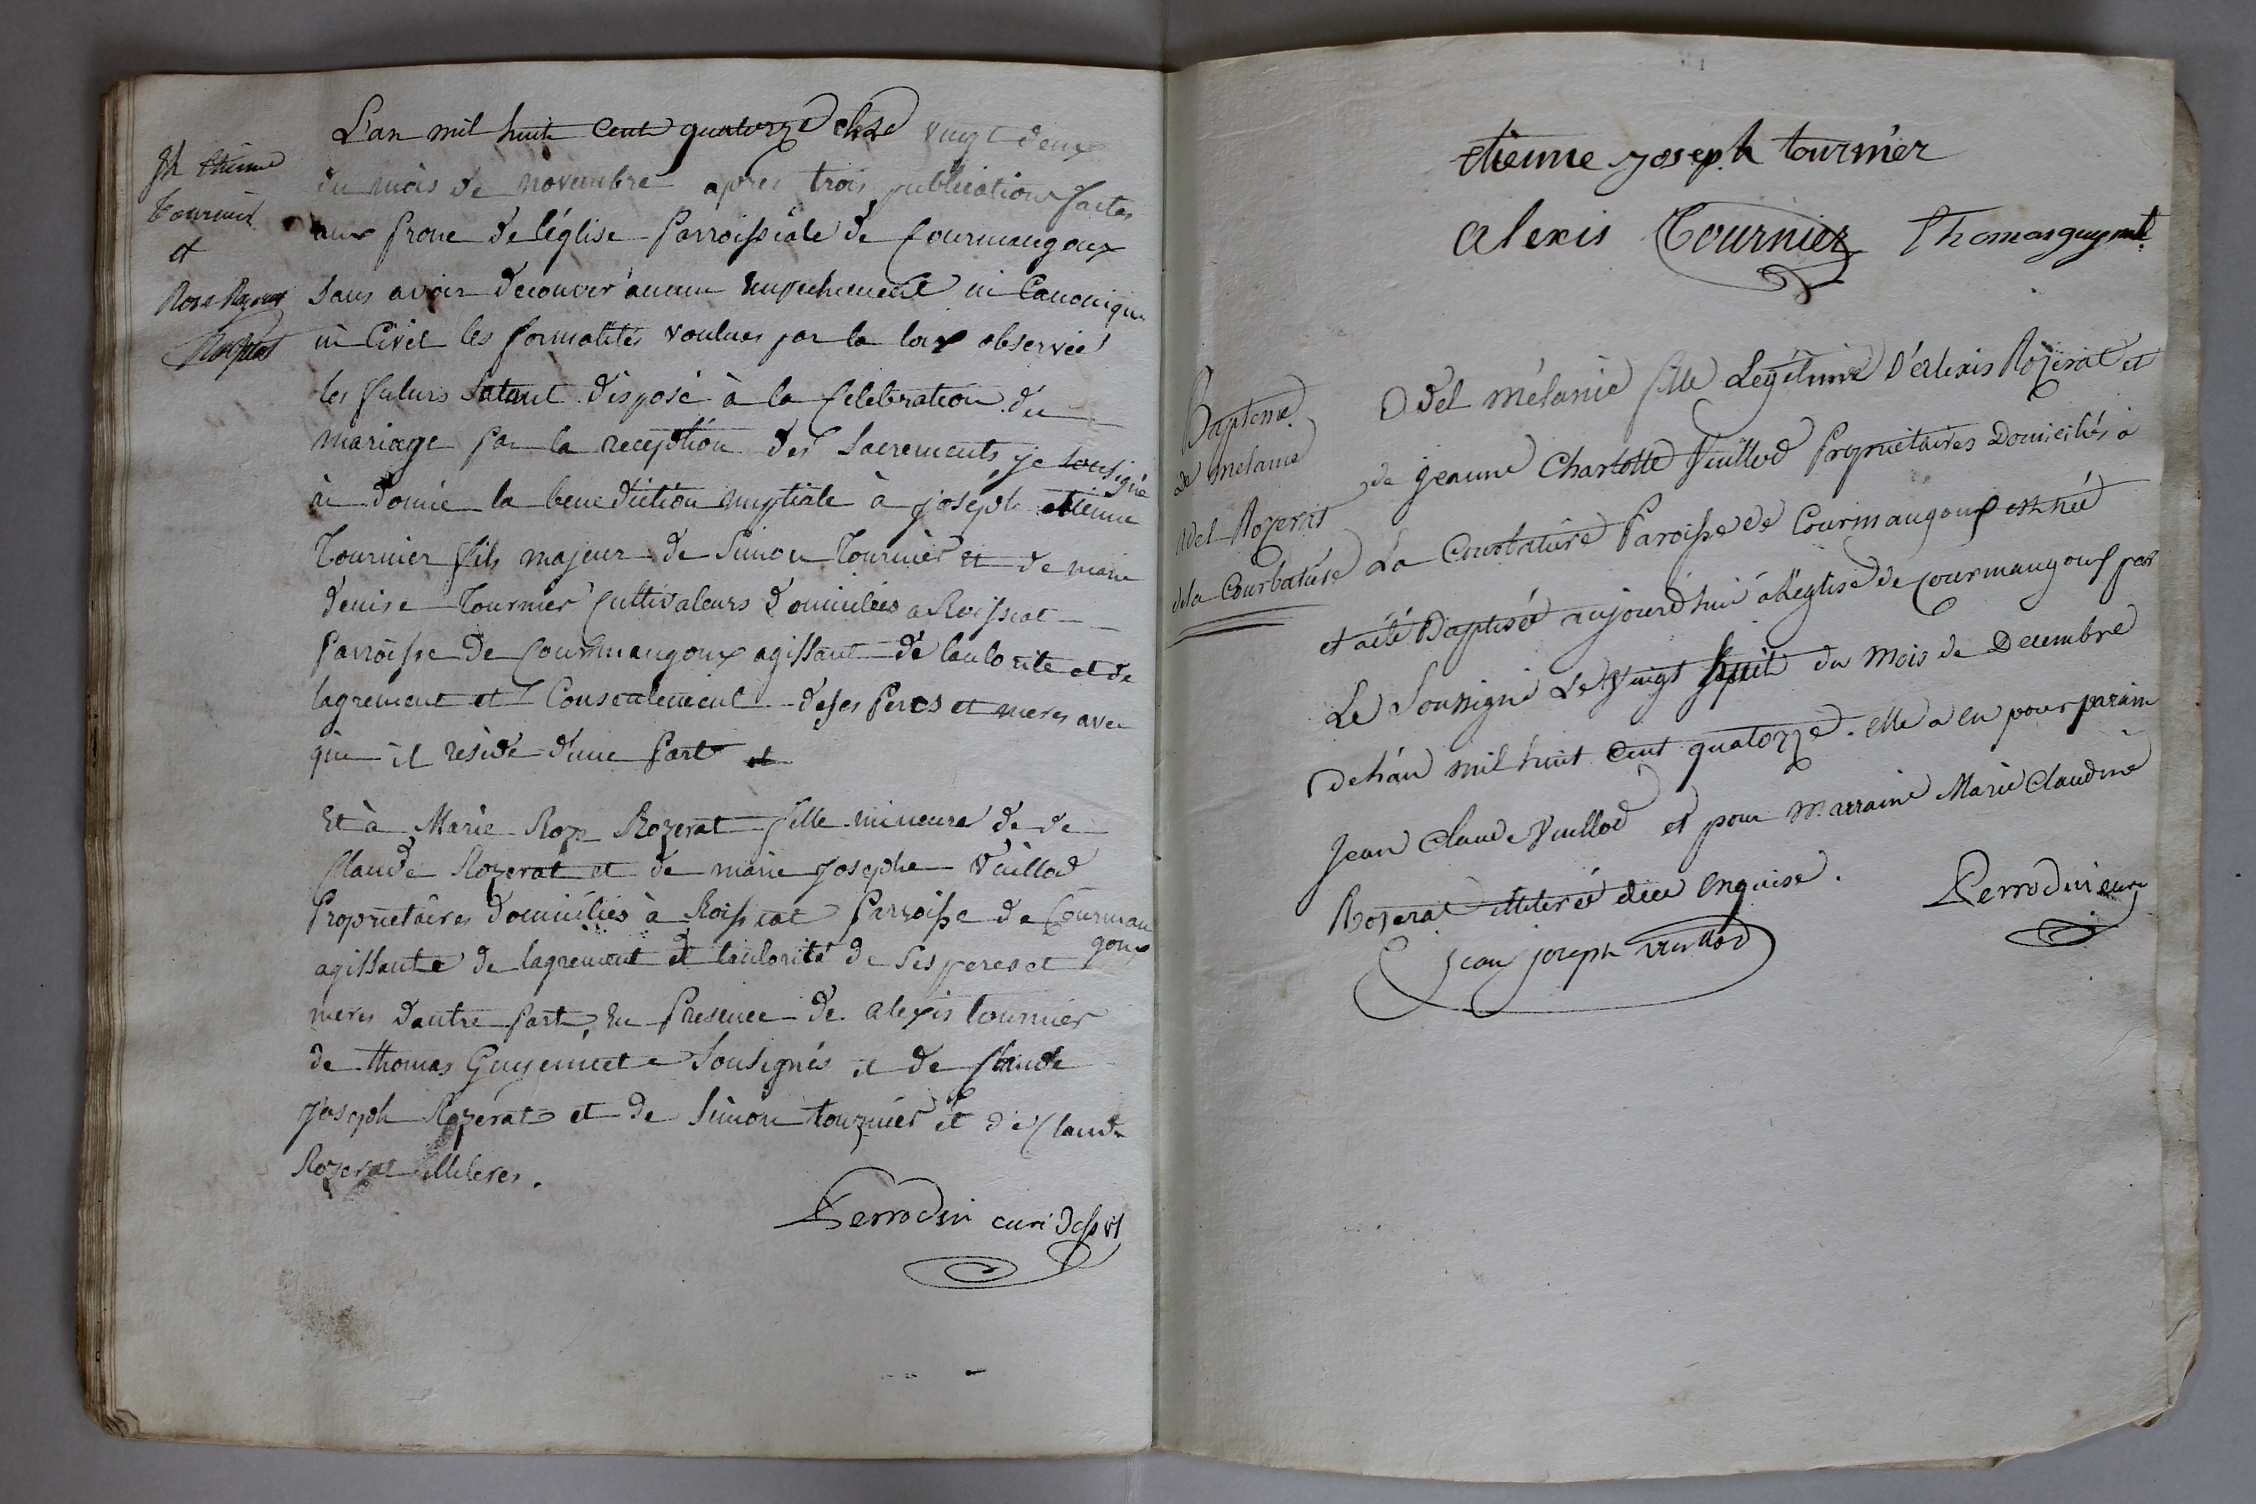 L'an mil huit cent quatorze et le vingt deux
du mois de novembre apres trois publications faites
aux prone de l'église parroissiale de Courmangoux
sans avoir decouver aucun empechement ni canonique
ni civil les formalités voulues par la loix observée
les futurs s'etant disposé à la celebration du
mariage par la reception des sacrements, je sousigné
ai donné la benediction nuptiale à joseph etienne
Tournier fils majeur de Simon Tournier et de marie
denise Tournier cultivateurs domiciliés a Roissiat
parroisse de Courmangoux agissant de lautorité et de
lagrement et consentement de ses peres et meres avec
qui il reside d'une part et
Et à Marie Roze Rozerat fille mineure de de
Claude Rozerat et de marie josephe Vuillod
Propriétaires domiciliés à Roissiat Parroisse de Courman
goux
agissante de lagrement et lautorité de ses peres et
meres dautre part, en presence de alexis tournier
de thomas Guyennet sousignés et de Claude
joseph Rozerat et de Simon tournier et de Claude
Rozerat illiteres.
Perrodin curé desst
jh etienne
Tournier
et
Rose Rozerat
Roissiat
etienne joseph tournier
alexis Tournier Thomas guyennet
Bapteme
de melanie
adel Rozerat
de la Courbatiére
Adel mélanie fille Légétime d'alexis Rozerat et
de jeanne Charlotte Vuillod Propriétaires Domiciliés à
La Courbatière Paroisse de Courmangoux est née
et a été Baptisée aujourd'hui à l'église de Courmangoux par
Le Soussigné Le vingt huit du mois de Decembre
de l'an mil huit cent quatorze. elle a eu pour parain
Jean Claude Vuillod et pour marraine Marie Claudine
Rozerat illiterée dece enquise.
Perrodin curé
jean joseph vuillod